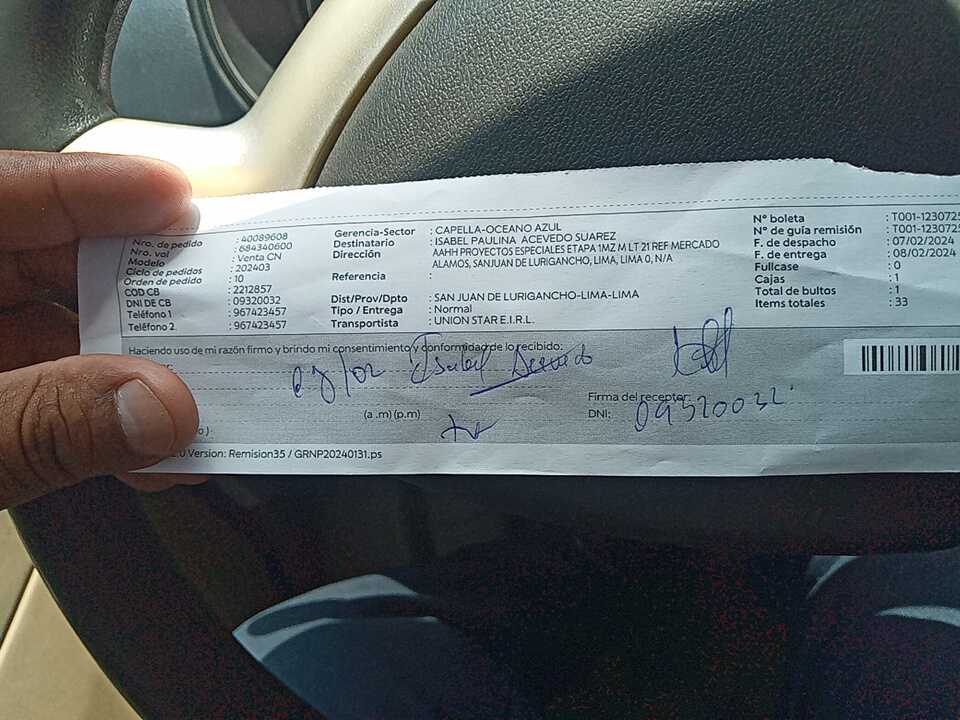 Nro. de pedido : 40089608
Nro. val : 684340600
Modelo : Venta CN
Ciclo de pedidos : 202403
Orden de pedido : 10
COD CB : 2212857
DNI DE CB : 09320032
Teléfono 1 : 967423457
Teléfono 2 : 967423457
Gerencia-Sector : CAPELLA-OCEANO AZUL
Destinatario : ISABEL PAULINA ACEVEDO SUAREZ
Dirección : AAHH PROYECTOS ESPECIALES ETAPA 1MZ M LT 21 REF MERCADO
ALAMOS, SANJUAN DE LURIGANCHO, LIMA, LIMA 0, N/A
Referencia :
Dist/Prov/Dpto : SAN JUAN DE LURIGANCHO-LIMA-LIMA
Tipo / Entrega : Normal
Transportista : UNION STAR E.I.R.L.
Nº boleta : T001-1230725
Nº de guía remisión : T001-1230725
F. de despacho : 07/02/2024
F. de entrega : 08/02/2024
Fullcase : 0
Cajas : 1
Total de bultos : 1
Items totales : 33
Haciendo uso de mi razón firmo y brindo mi consentimiento y conformidad de lo recibido:
Isabel Acevedo
Firma del receptor:
(a .m) (p.m)
DNI: 09320032
.0 Version: Remision35 / GRNP20240131.ps